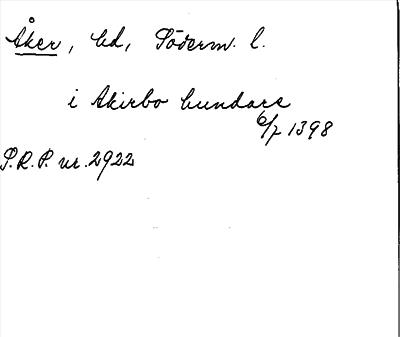 Åker, hd, Söderm. l.
i Akirbo hundare
6/7 1398
P.R.P. nr. 2922